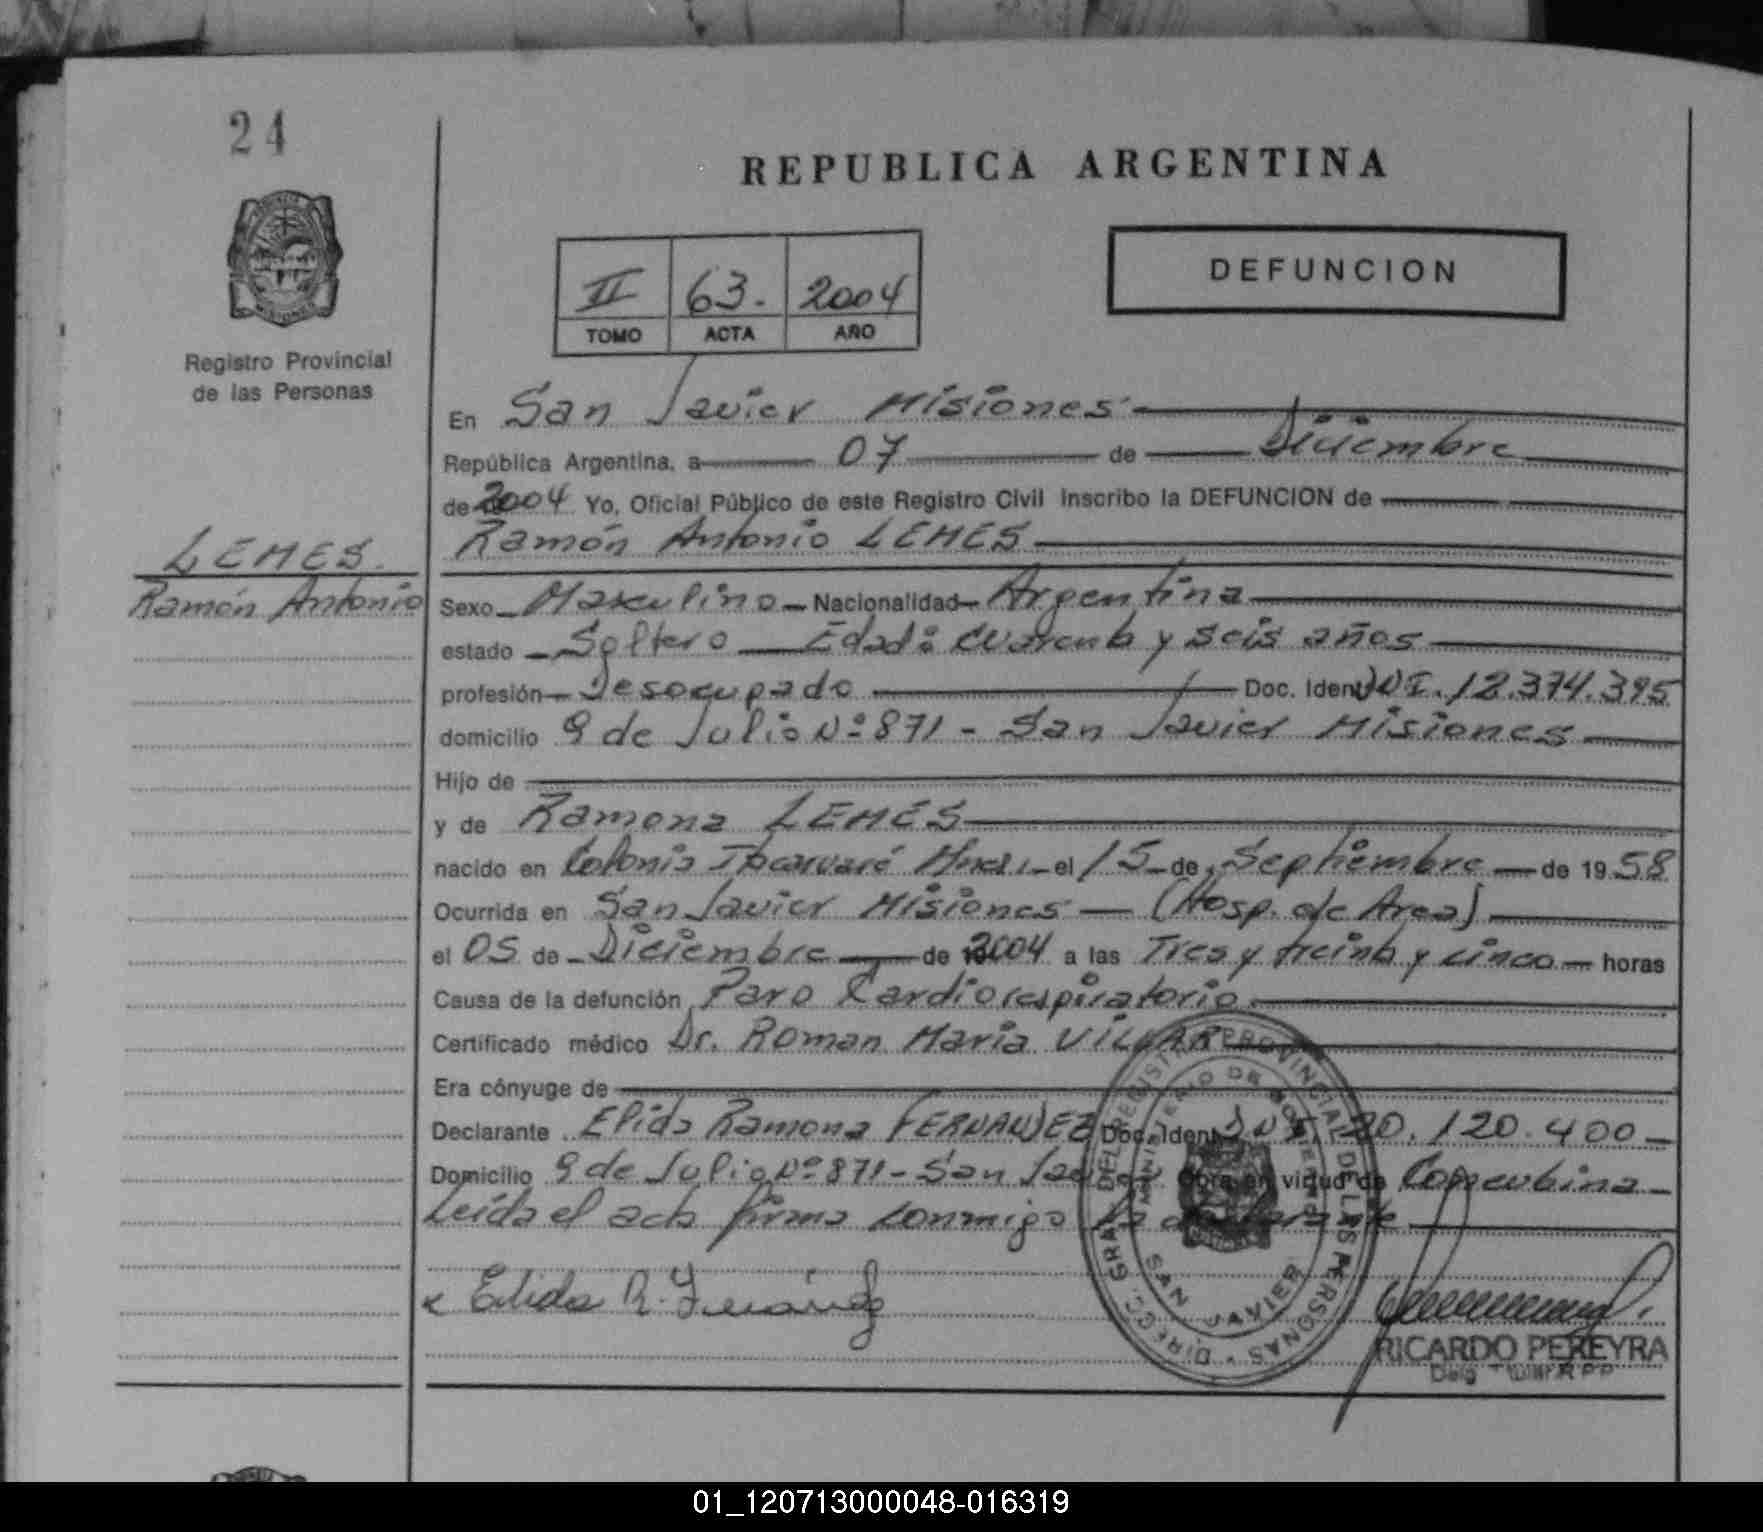 24
REPUBLICA ARGENTINA
DEFUNCION
II 63. 2004
TOMO ACTA AÑO
Registro Provincial
de las Personas
En San Javier Misiones
República Argentina, a 07 de Diciembre
de 2004 Yo, Oficial Público de este Registro Civil inscribo la DEFUNCION de
Ramón Antonio LEMES
LEMES.
Ramón Antonio
Sexo Masculino Nacionalidad Argentina
estado Soltero Edad: Cuarenta y seis años
profesión Desocupado Doc. Ident. DNI. 12.374.395
domicilio 9 de Julio Nº 871 - San Javier Misiones
Hijo de
y de Ramona LEMES
nacido en Colonia el 15 de Septiembre de 1958
Ocurrida en San Javier Misiones (Hosp. de Area)
el 05 de Diciembre de 2004 a las Tres y treinta y cinco horas
Causa de la defunción Paro Cardiorespiratorio
Certificado médico Dr. Roman Maria
Era cónyuge de
Declarante Elida Ramona FERNANDEZ Doc. Ident. DNI. 20.120.400
Domicilio 9 de Julio Nº 871 - San Javier Obra en virtud de Concubina
Leida el acta firma conmigo la declarante
Elida R. Fernández
DIRECC. GRAL. DEL REGISTRO PROVINCIAL DE LAS PERSONAS
MINISTERIO DE GOBIERNO
SAN JAVIER
RICARDO PEREYRA
01_120713000048-016319